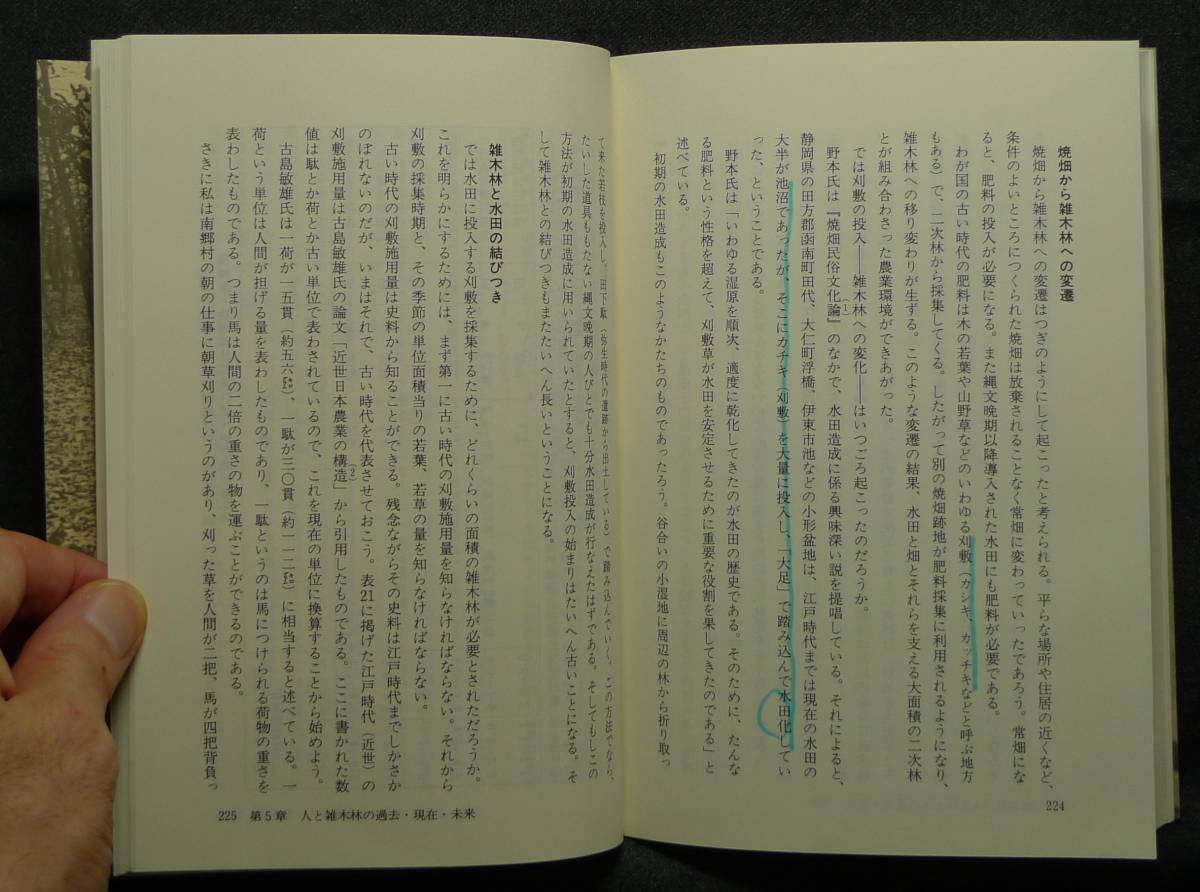 焼畑から雑木林への変遷
焼畑から雑木林への変遷はつぎのようにして起こったと考えられる。平らな場所や住居の近くなど、
条件のよいところにつくられた焼畑は放棄されることなく常畑に変わっていったであろう。常畑にな
ると、肥料の投入が必要になる。また縄文晩期以降導入された水田にも肥料が必要である。
わが国の古い時代の肥料は木の若葉や山野草などのいわゆる刈敷(カシキ、カッチキなどと呼ぶ地方
もある)で、二次林から採集してくる。したがって別の焼畑跡地が肥料採集に利用されるようになり、
雑木林への移り変わりが生ずる。このような変遷の結果、水田と畑とそれらを支える大面積の二次林
とが組み合わさった農業環境ができあがった。
では刈敷の投入——雑木林への変化——はいつごろ起こったのだろうか。
野本氏は『焼畑民俗文化論』(1)のなかで、水田造成に係る興味深い説を提唱している。それによると、
静岡県の田方郡函南町田代、大仁町浮橋、伊東市池などの小形盆地は、江戸時代までは現在の水田の
大半が池沼であったが、そこにカチキ(刈敷)を大量に投入し、「大足」で踏み込んで水田化してい
った、ということである。
野本氏は「いわゆる湿原を順次、適度に乾化してきたのが水田の歴史である。そのために、たんな
る肥料という性格を超えて、刈敷草が水田を安定させるために重要な役割を果してきたのである」と
述べている。
初期の水田造成もこのようなかたちのものであったろう。谷合いの小湿地に周辺の林から折り取っ
224
て来た若枝を投入し、田下駄(弥生時代の遺跡から出土している)で踏み込んでいく。この方法でなら、
たいした道具ももたない縄文晩期の人びとでも十分水田造成が行なえたはずである。そしてもしこの
方法が初期の水田造成に用いられていたとすると、刈敷投入の始まりはたいへん古いことになる。そ
して雑木林との結びつきもまたたいへん長いということになる。
雑木林と水田の結びつき
では水田に投入する刈敷を採集するために、どれくらいの面積の雑木林が必要とされただろうか。
これを明らかにするためには、まず第一に古い時代の刈敷施用量を知らなければならない。それから
刈敷の採集時期と、その季節の単位面積当りの若葉、若草の量を知らなければならない。
古い時代の刈敷施用量は史料から知ることができる。残念ながらその史料は江戸時代までしかさか
のぼれないのだが、いまはそれで、古い時代を代表させておこう。表21に掲げた江戸時代(近世)の
刈敷施用量は古島敏雄氏の論文「近世日本農業の構造」(2)から引用したものである。ここに書かれた数
値は駄とか荷とか古い単位で表わされているので、これを現在の単位に換算することから始めよう。
古島敏雄氏は一荷が一五貫(約五六キロ)、一駄が三〇貫(約一一二キロ)に相当すると述べている。一
荷という単位は人間が担げる量を表わしたものであり、一駄というのは馬につけられる荷物の重さを
表わしたものである。つまり馬は人間の二倍の重さの物を運ぶことができるのである。
さきに私は南郷村の朝の仕事に朝草刈りというのがあり、刈った草を人間が二把、馬が四把背負っ
225 第5章 人と雑木林の過去・現在・未来